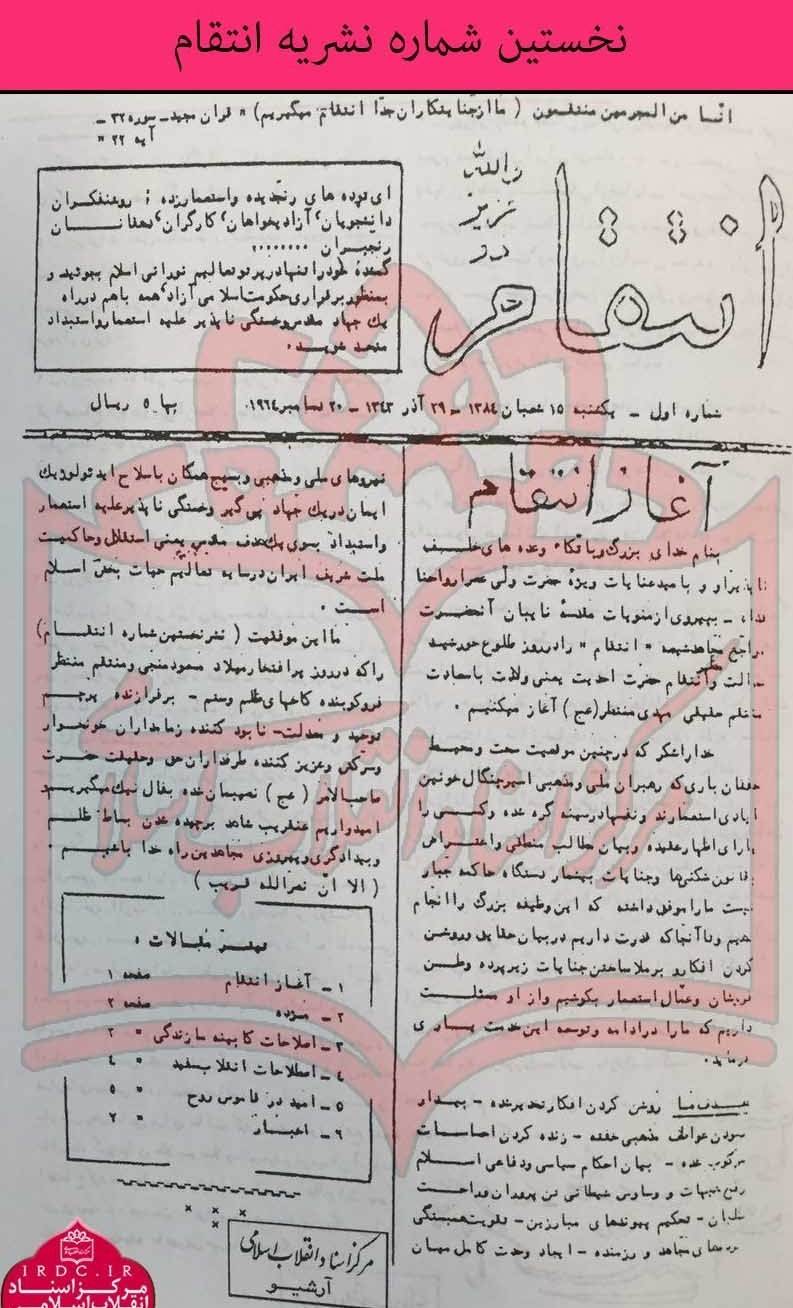 نخستین شماره نشریه انتقام
انّا من المجرمین منتقمون ( ما از جنایتکاران جدّا انتقام میگیریم ) " قرآن مجید ـ سوره ۳۲ ـ
آیه ۲۲ "
انتقام
والله
عزیز
ذو
ای توده های رنجدیده واستعمارزده ؛ روشنفکران
دانشجویان ٬ آزادیخواهان ٬ کارگران ٬ دهقانان
رنجبران ........
گمشده خود را تنها در پرتو تعالیم نورانی اسلام بجوئید و
بمنظور برقراری حکومت اسلامی آزاد ٬ همه باهم در راه
یک جهاد مقدس وخستگی ناپذیر علیه استعمار واستبداد
متحد شوید .
شماره اول ـ یکشنبه ۱۵ شعبان ۱۳۸٤ ـ ۲۹ آذر ۱۳٤۳ ـ ۲۰ دسامبر ۱۹٦٤ . بها ٥ ریال
آغاز انتقام
بنام خدای بزرگ وبا اتکاء وعده های خلف
ناپذیر او و با امید عنایات ویژه حضرت ولی عصر ارواحنا
فداه ـ بپیروی از منویات مقدسه نایبان آنحضرت
مراجع مجاهد شیعه " انتقام " را در روز طلوع خورشید
عدالت و مظهر انتقام حضرت احدیت یعنی ولادت باسعادت
منتقم حقیقی مهدی منتظر (عج) آغاز میکنیم .
خدا را شکر که در چنین موقعیت سخت ومحیط
خفقان باری که رهبران ملی ومذهبی اسیر چنگال خونین
ایادی استعمارند ونفسها در سینه گره شده وکسی را
یارای اظهار عقیده وبیان مطالب منطقی واعتراض
بقانون شکنی ها وجنایات بیشمار دستگاه حاکمه جبار
نیست ما را موفق داشته که این وظیفه بزرگ را انجام
دهیم وتا آنجا که قدرت داریم در بیان حقایق وروشن
کردن افکار و برملا ساختن جنایات زیر پرده وطن
فروشان وعمّال استعمار بکوشیم واز او مسئلت
داریم که ما را در ادامه وتوسعه این خدمت یاری
فرماید .
هدف ما روشن کردن افکار تخدیر شده ـ بیدار
نمودن عواطف مذهبی خفته ـ زنده کردن احساسات
سرکوب شده ـ بیان احکام سیاسی ودفاعی اسلام
رفع شبهات و وساوس شیطانی تن پروران وراحت
طلبان ـ تحکیم پیوندهای مبارزین ـ تقویت همبستگی
توده های مجاهد و رزمنده ـ ایجاد وحدت کامل میان
نیروهای ملی ومذهبی وبسیج همگان باسلاح ایدئولوژیک
ایمان در یک جهاد پی گیر وخستگی ناپذیر علیه استعمار
واستبداد بسوی یک هدف مقدس یعنی استقلال وحاکمیت
ملت شریف ایران در سایه تعالیم حیات بخش اسلام
است .
ما این موفقیت ( نشر نخستین شماره انتقام )
را که در روز پرافتخار میلاد مسعود منجی ومنتقم منتظر
فروکوبنده کاخهای ظلم وستم ـ برفرازنده پرچم
توحید و عدالت ـ نابود کننده زمامداران خونخوار
وسرکش وعزیز کننده طرفداران حق وحقیقت حضرت
صاحب الامر ( عج ) نصیبمان شده بفال نیک میگیریم و
امیدواریم عنقریب شاهد برچیده شدن بساط ظلم
وبیدادگری وپیروزی مجاهدین راه خدا باشیم .
( الا انّ نصرالله قریب )
فهرست مقالات :
۱ ـ آغاز انتقام صفحه ۱
۲ ـ مژده صفحه ۲
۳ ـ اصلاحات کابینه سازندگی " ۲
٤ ـ اصطلاحات انقلاب سفید " ٤
٥ ـ امید در قاموس روح " ٥
٦ ـ اخبار " ۲
مرکز اسناد انقلاب اسلامی
آرشیو
مرکز اسناد انقلاب اسلامی
IRDC.IR
مرکز اسناد
انقلاب اسلامی